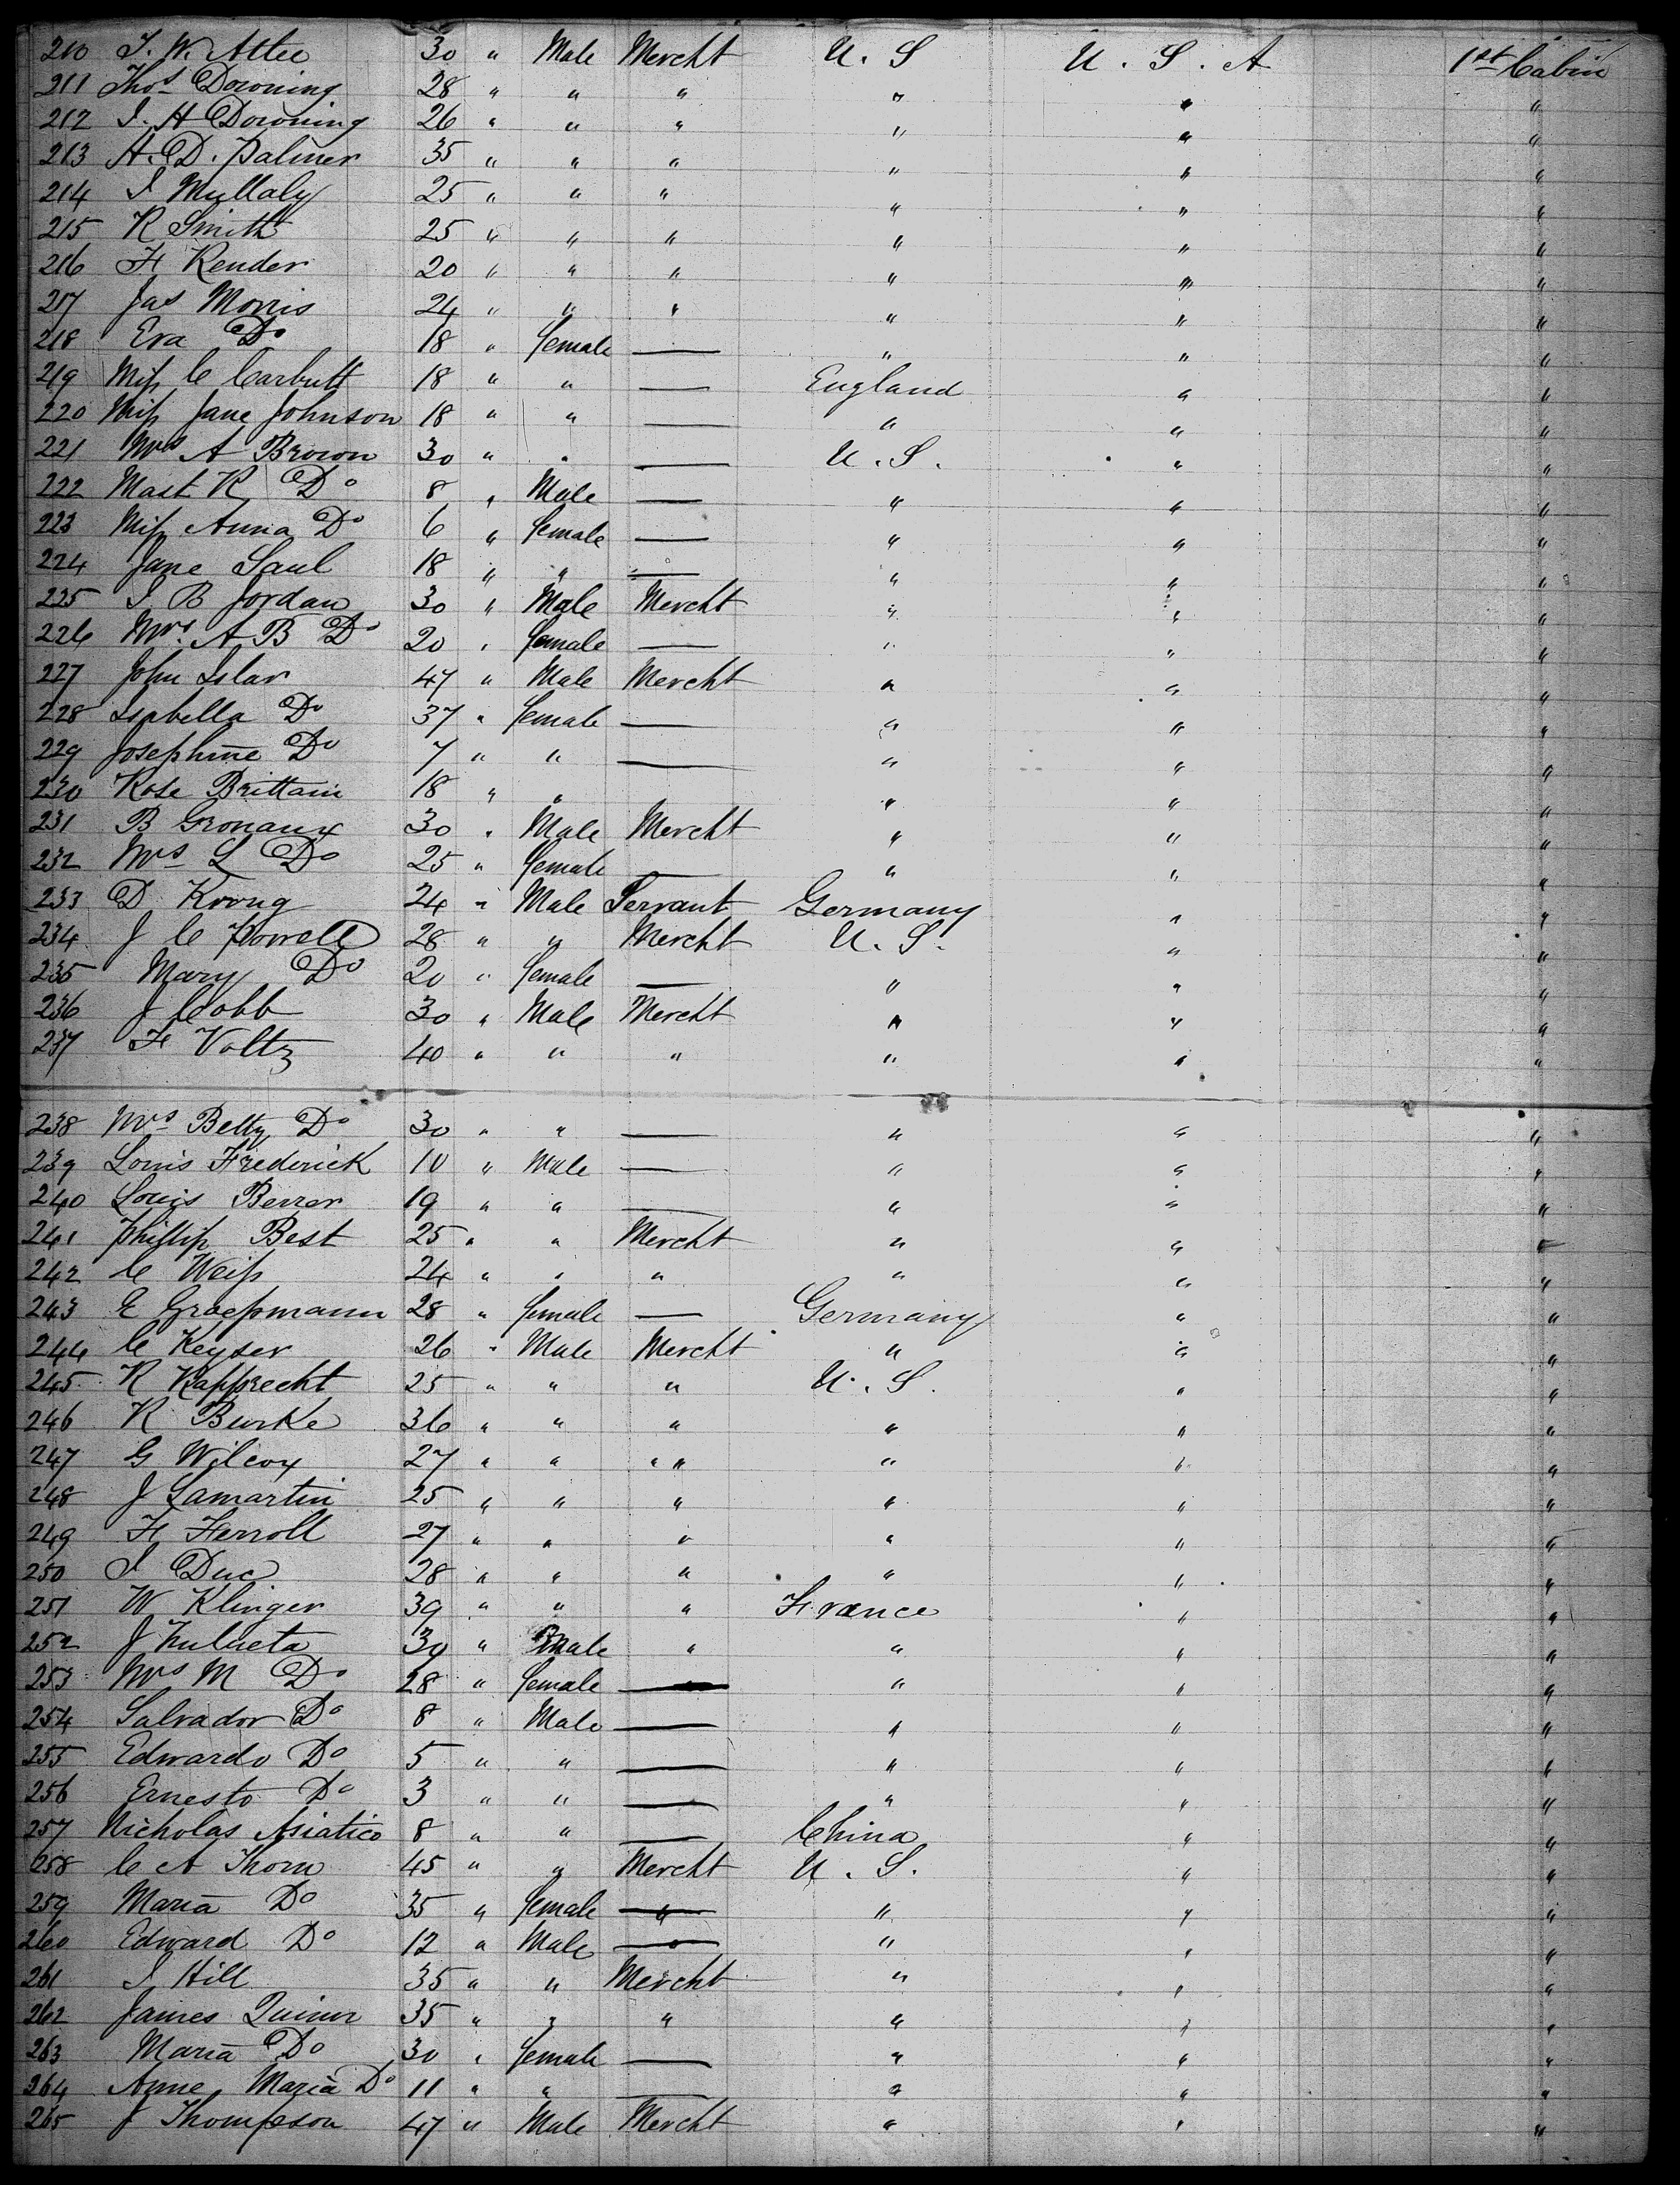 210 T. W. Atlee 30 " Male Mercht U. S U. S. A 1st Cabin
211 Thos Downing 28 " " " " " "
212 I. H Downing 26 " " " " " "
213 A. D. Palmer 35 " " " " " "
214 I Mullaly 25 " " " " " "
215 R Smith 25 " " " " " "
216 H Render 20 " " " " " "
217 Jas Morris 24 " " " " " "
218 Eva Do 18 " female — " " "
219 Miss C Carbutt 18 " " — England " "
220 Miss Jane Johnson 18 " " — " " "
221 Mrs A Brown 30 " " — U. S. " "
222 Mast R Do 8 " Male — " " "
223 Miss Anna Do 6 " female — " " "
224 Jane Saul 18 " " — " " "
225 I B Jordan 30 " Male Mercht " " "
226 Mrs. A B Do 20 " female — " " "
227 John Islar 47 " Male Mercht " " "
228 Isabella Do 37 " female — " " "
229 Josephine Do 7 " " — " " "
230 Rose Brittain 18 " " " " "
231 B Gronaux 30 " Male Mercht " " "
232 Mrs L Do 25 " female — " " "
233 D Krong 24 " Male Servant Germany " "
234 J C Powell 28 " " Mercht U. S. " "
235 Mary Do 20 " female — " " "
236 J Cobb 30 " Male Mercht " " "
237 F Voltz 40 " " " " " "
238 Mrs Betty Do 30 " " — " " "
239 Louis Frederick 10 " Male — " " "
240 Louis Berrer 19 " " — " " "
241 Phillip Best 25 " " Mercht " " "
242 C Weiss 24 " " " " " "
243 E Graessmann 28 " female — Germany " "
244 C Keyser 26 " Male Mercht " " "
245 R Rapprecht 25 " " " U. S. " "
246 R Burke 36 " " " " " "
247 G Wilcox 27 " " " " " " "
248 J Lamartin 25 " " " " " "
249 F Ferroll 27 " " " " " "
250 I Duc 28 " " " " " "
251 W Klinger 39 " " " France " "
252 J Zulueta 30 " Male " " " "
253 Mrs M Do 28 " female — " " "
254 Salvador Do 8 " Male — " " "
255 Edwardo Do 5 " " — " " "
256 Ernesto Do 3 " " — " " "
257 Nicholas Asiatico 8 " " — China " "
258 C A Thorn 45 " " Mercht U. S. " "
259 Maria Do 35 " female — " " "
260 Edward Do 12 " Male — " " "
261 I Hill 35 " " Mercht " " "
262 James 35 " " " " " "
263 Maria Do 30 " female — " " "
264 Anne Maria Do 11 " " — " " "
265 J Thompson 47 " Male Mercht " " "